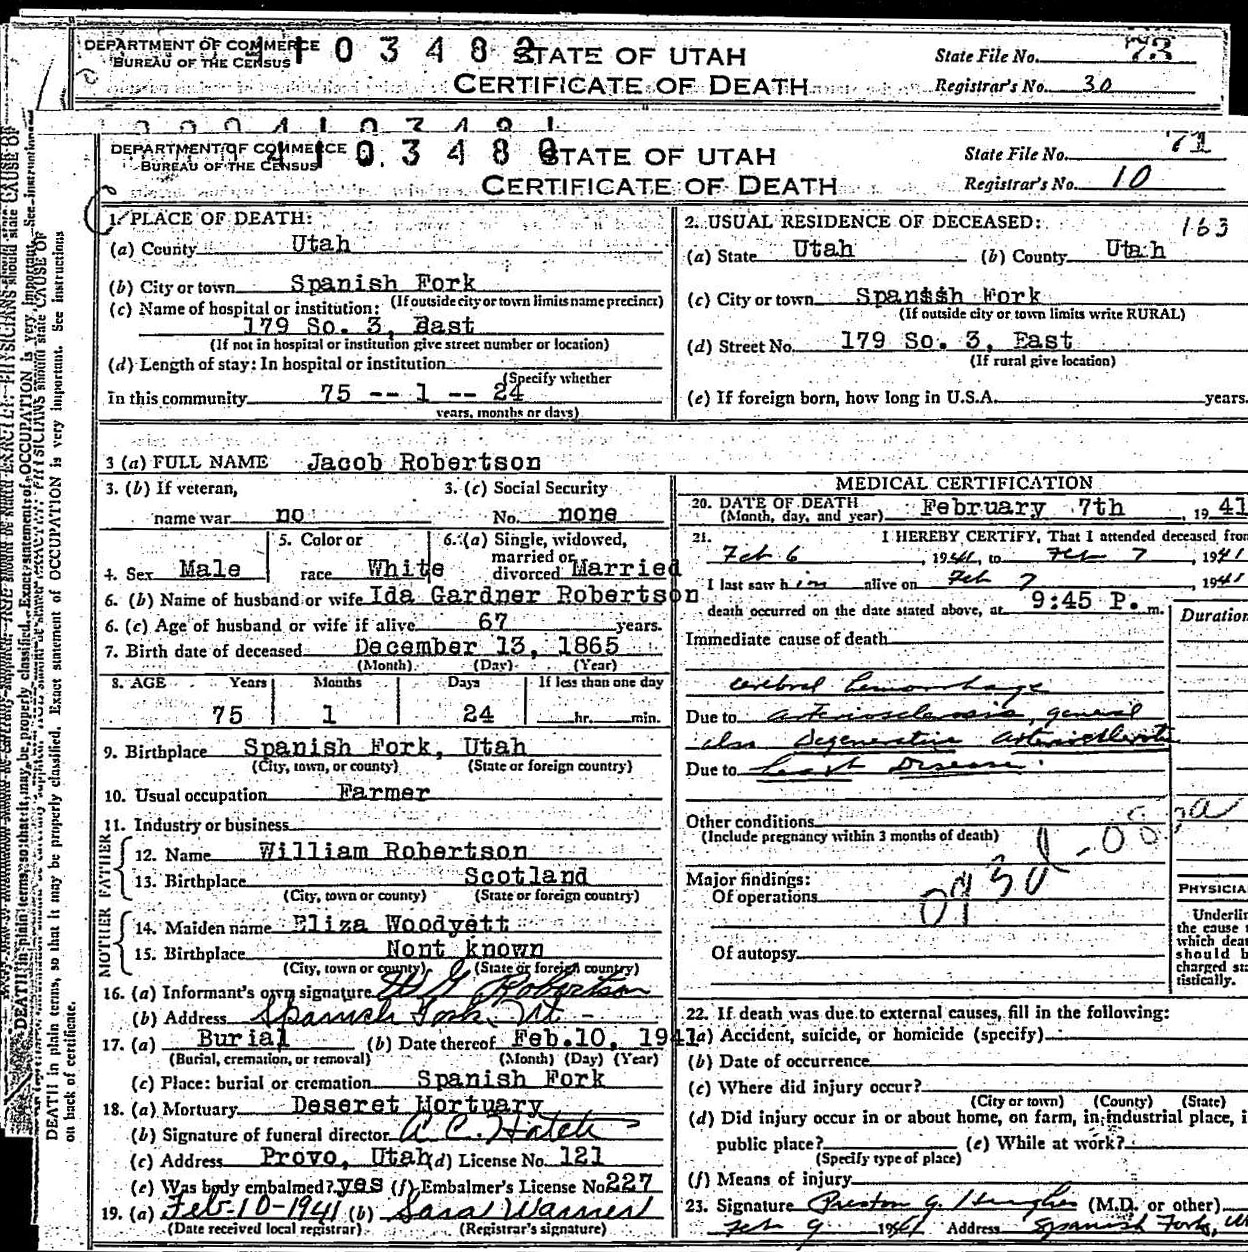 DEPARTMENT OF COMMERCE
BUREAU OF THE CENSUS
STATE OF UTAH
CERTIFICATE OF DEATH
State File No. 73
Registrar's No. 30
DEPARTMENT OF COMMERCE
BUREAU OF THE CENSUS
STATE OF UTAH
CERTIFICATE OF DEATH
State File No. 71
Registrar's No. 10
1. PLACE OF DEATH:
(a) County Utah
(b) City or town Spanish Fork
(If outside city or town limits name precinct)
(c) Name of hospital or institution:
179 So. 3, East
(If not in hospital or institution give street number or location)
(d) Length of stay: In hospital or institution
(Specify whether
In this community 75 -- 1 -- 24
years, months or days)
2. USUAL RESIDENCE OF DECEASED: 163
(a) State Utah (b) County Utah
(c) City or town Span$$sh Fork
(If outside city or town limits write RURAL)
(d) Street No. 179 So. 3, East
(If rural give location)
(e) If foreign born, how long in U.S.A. years.
3 (a) FULL NAME Jacob Robertson
3. (b) If veteran,
name war no
3. (c) Social Security
No. none
4. Sex Male
5. Color or
race White
6. (a) Single, widowed,
married or
divorced Married
6. (b) Name of husband or wife Ida Gardner Robertson
6. (c) Age of husband or wife if alive 67 years.
7. Birth date of deceased December 13, 1865
(Month) (Day) (Year)
8. AGE Years Months Days If less than one day
75 1 24 hr. min.
9. Birthplace Spanish Fork, Utah
(City, town, or county) (State or foreign country)
10. Usual occupation Farmer
11. Industry or business
FATHER
12. Name William Robertson
13. Birthplace Scotland
(City, town or county) (State or foreign country)
MOTHER
14. Maiden name Eliza Woodyett
15. Birthplace Nont known
(City, town or county) (State or foreign country)
16. (a) Informant's own signature Robertson
(b) Address Spanish Fork, Ut. -
17. (a) Burial (b) Date thereof Feb.10, 1941
(Burial, cremation, or removal) (Month) (Day) (Year)
(c) Place: burial or cremation Spanish Fork
18. (a) Mortuary Deseret Mortuary
(b) Signature of funeral director A C. Hatch
(c) Address Provo, Utah (d) License No. 121
(e) Was body embalmed? yes (f) Embalmer's License No 227
19. (a) Feb-10-1941 (b) Sara Warner
(Date received local registrar) (Registrar's signature)
MEDICAL CERTIFICATION
20. DATE OF DEATH February 7th, 1941
(Month, day, and year)
21. I HEREBY CERTIFY, That I attended deceased from
Feb 6, 1941, to Feb 7, 1941
I last saw him alive on Feb 7, 1941
death occurred on the date stated above, at 9:45 P. m.
Duration
Immediate cause of death
cerebral hemorrhage
Due to arteriosclerosis, general
also Degenerative
Due to heart Disease.
Other conditions
(Include pregnancy within 3 months of death)
Major findings:
Of operations
Of autopsy
PHYSICIA
Underlin
the cause
which deat
should b
charged sta
tistically.
22. If death was due to external causes, fill in the following:
(a) Accident, suicide, or homicide (specify)
(b) Date of occurrence
(c) Where did injury occur?
(City or town) (County) (State)
(d) Did injury occur in or about home, on farm, in industrial place, i
public place? (e) While at work?
(Specify type of place)
(f) Means of injury
23. Signature Preston G. Hughes (M.D. or other)
Feb 9 1941 Address Spanish Fork, Ut
DEATH in plain terms, so that it may be properly classified. Exact statement of OCCUPATION is very important. See instructions
on back of certificate.